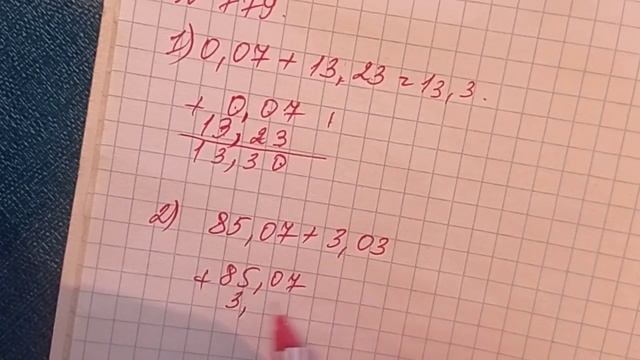 № 779.
1) 0,07 + 13,23 = 13,3.
+ 0,07
13,23
13,30
2) 85,07 + 3,03
+ 85,07
3,